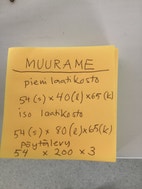 MUURAME
pieni laatikosto
54 (s) x 40 (l) x 65 (k)
iso laatikosto
54 (s) x 80 (l) x 65 (k)
pöytälevy
54 x 200 x 3